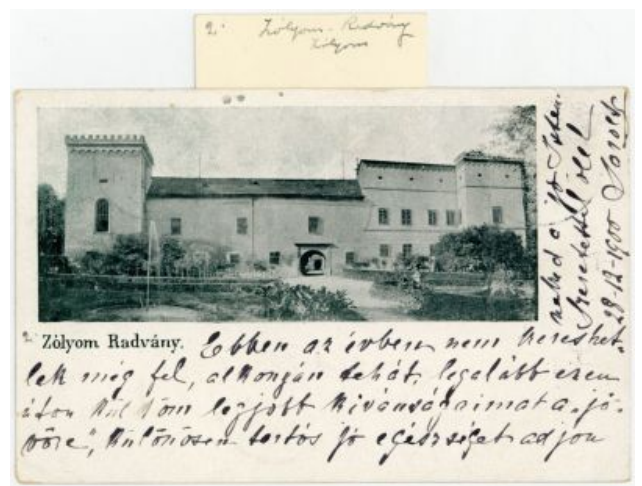 2. Zólyom-Radvány
Zólyom
Zólyom Radvány.
Ebben az évben nem kereshet-
lek még fel, alkonyán tehát, legalább ezen
úton küldöm legjobb kivánságaimat a „jö-
vőre”, különösen tartós jó egészséget adjon
neked a jó Isten.
Szeretettel ölel
28-12-1900